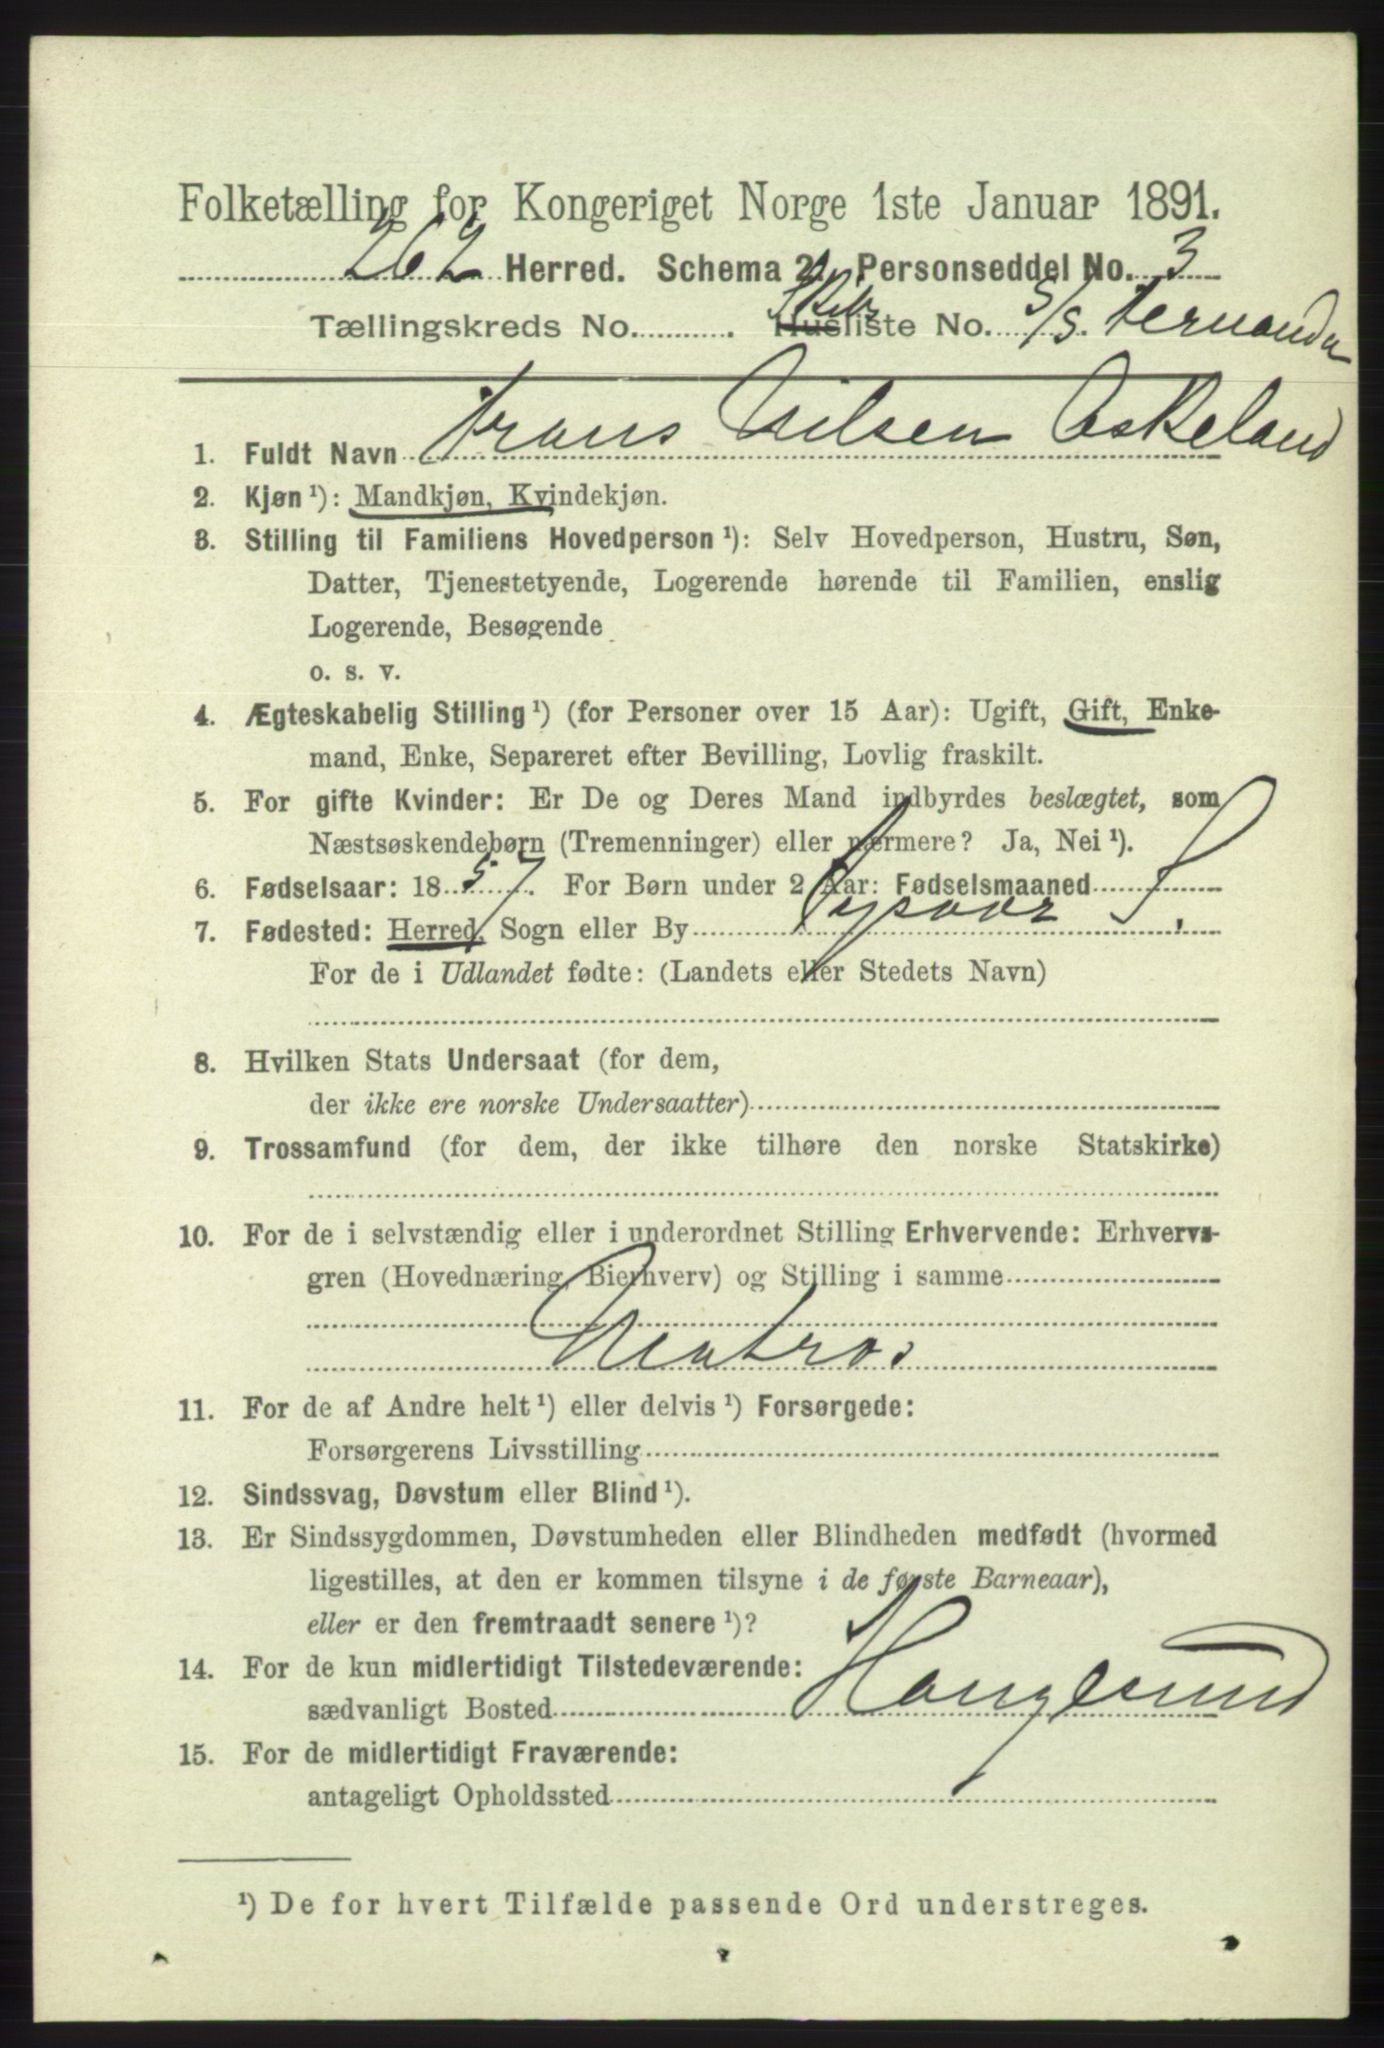 Folketælling for Kongeriget Norge 1ste Januar 1891.
262 Herred. Schema 2. Personseddel No. 3
Tællingskreds No. Skibsliste No. S/S. Fernanda
1. Fuldt Navn Frans Nilsen Askeland
2. Kjøn ¹): Mandkjøn, Kvindekjøn.
3. Stilling til Familiens Hovedperson ¹): Selv Hovedperson, Hustru, Søn,
Datter, Tjenestetyende, Logerende hørende til Familien, enslig
Logerende, Besøgende
o. s. v.
4. Ægteskabelig Stilling ¹) (for Personer over 15 Aar): Ugift, Gift, Enke-
mand, Enke, Separeret efter Bevilling, Lovlig fraskilt.
5. For gifte Kvinder: Er De og Deres Mand indbyrdes beslægtet, som
Næstsøskendebørn (Tremenninger) eller nærmere? Ja, Nei ¹).
6. Fødselsaar: 1857. For Børn under 2 Aar: Fødselsmaaned
7. Fødested: Herred, Sogn eller By Tysvær S.
For de i Udlandet fødte: (Landets eller Stedets Navn)
8. Hvilken Stats Undersaat (for dem,
der ikke ere norske Undersaatter)
9. Trossamfund (for dem, der ikke tilhøre den norske Statskirke)
10. For de i selvstændig eller i underordnet Stilling Erhvervende: Erhvervs-
gren (Hovednæring, Bierhverv) og Stilling i samme
Matros
11. For de af Andre helt ¹) eller delvis ¹) Forsørgede:
Forsørgerens Livsstilling
12. Sindssvag, Døvstum eller Blind ¹).
13. Er Sindssygdommen, Døvstumheden eller Blindheden medfødt (hvormed
ligestilles, at den er kommen tilsyne i de første Barneaar),
eller er den fremtraadt senere ¹)?
14. For de kun midlertidigt Tilstedeværende:
sædvanligt Bosted Haugesund
15. For de midlertidigt Fraværende:
antageligt Opholdssted
¹) De for hvert Tilfælde passende Ord understreges.